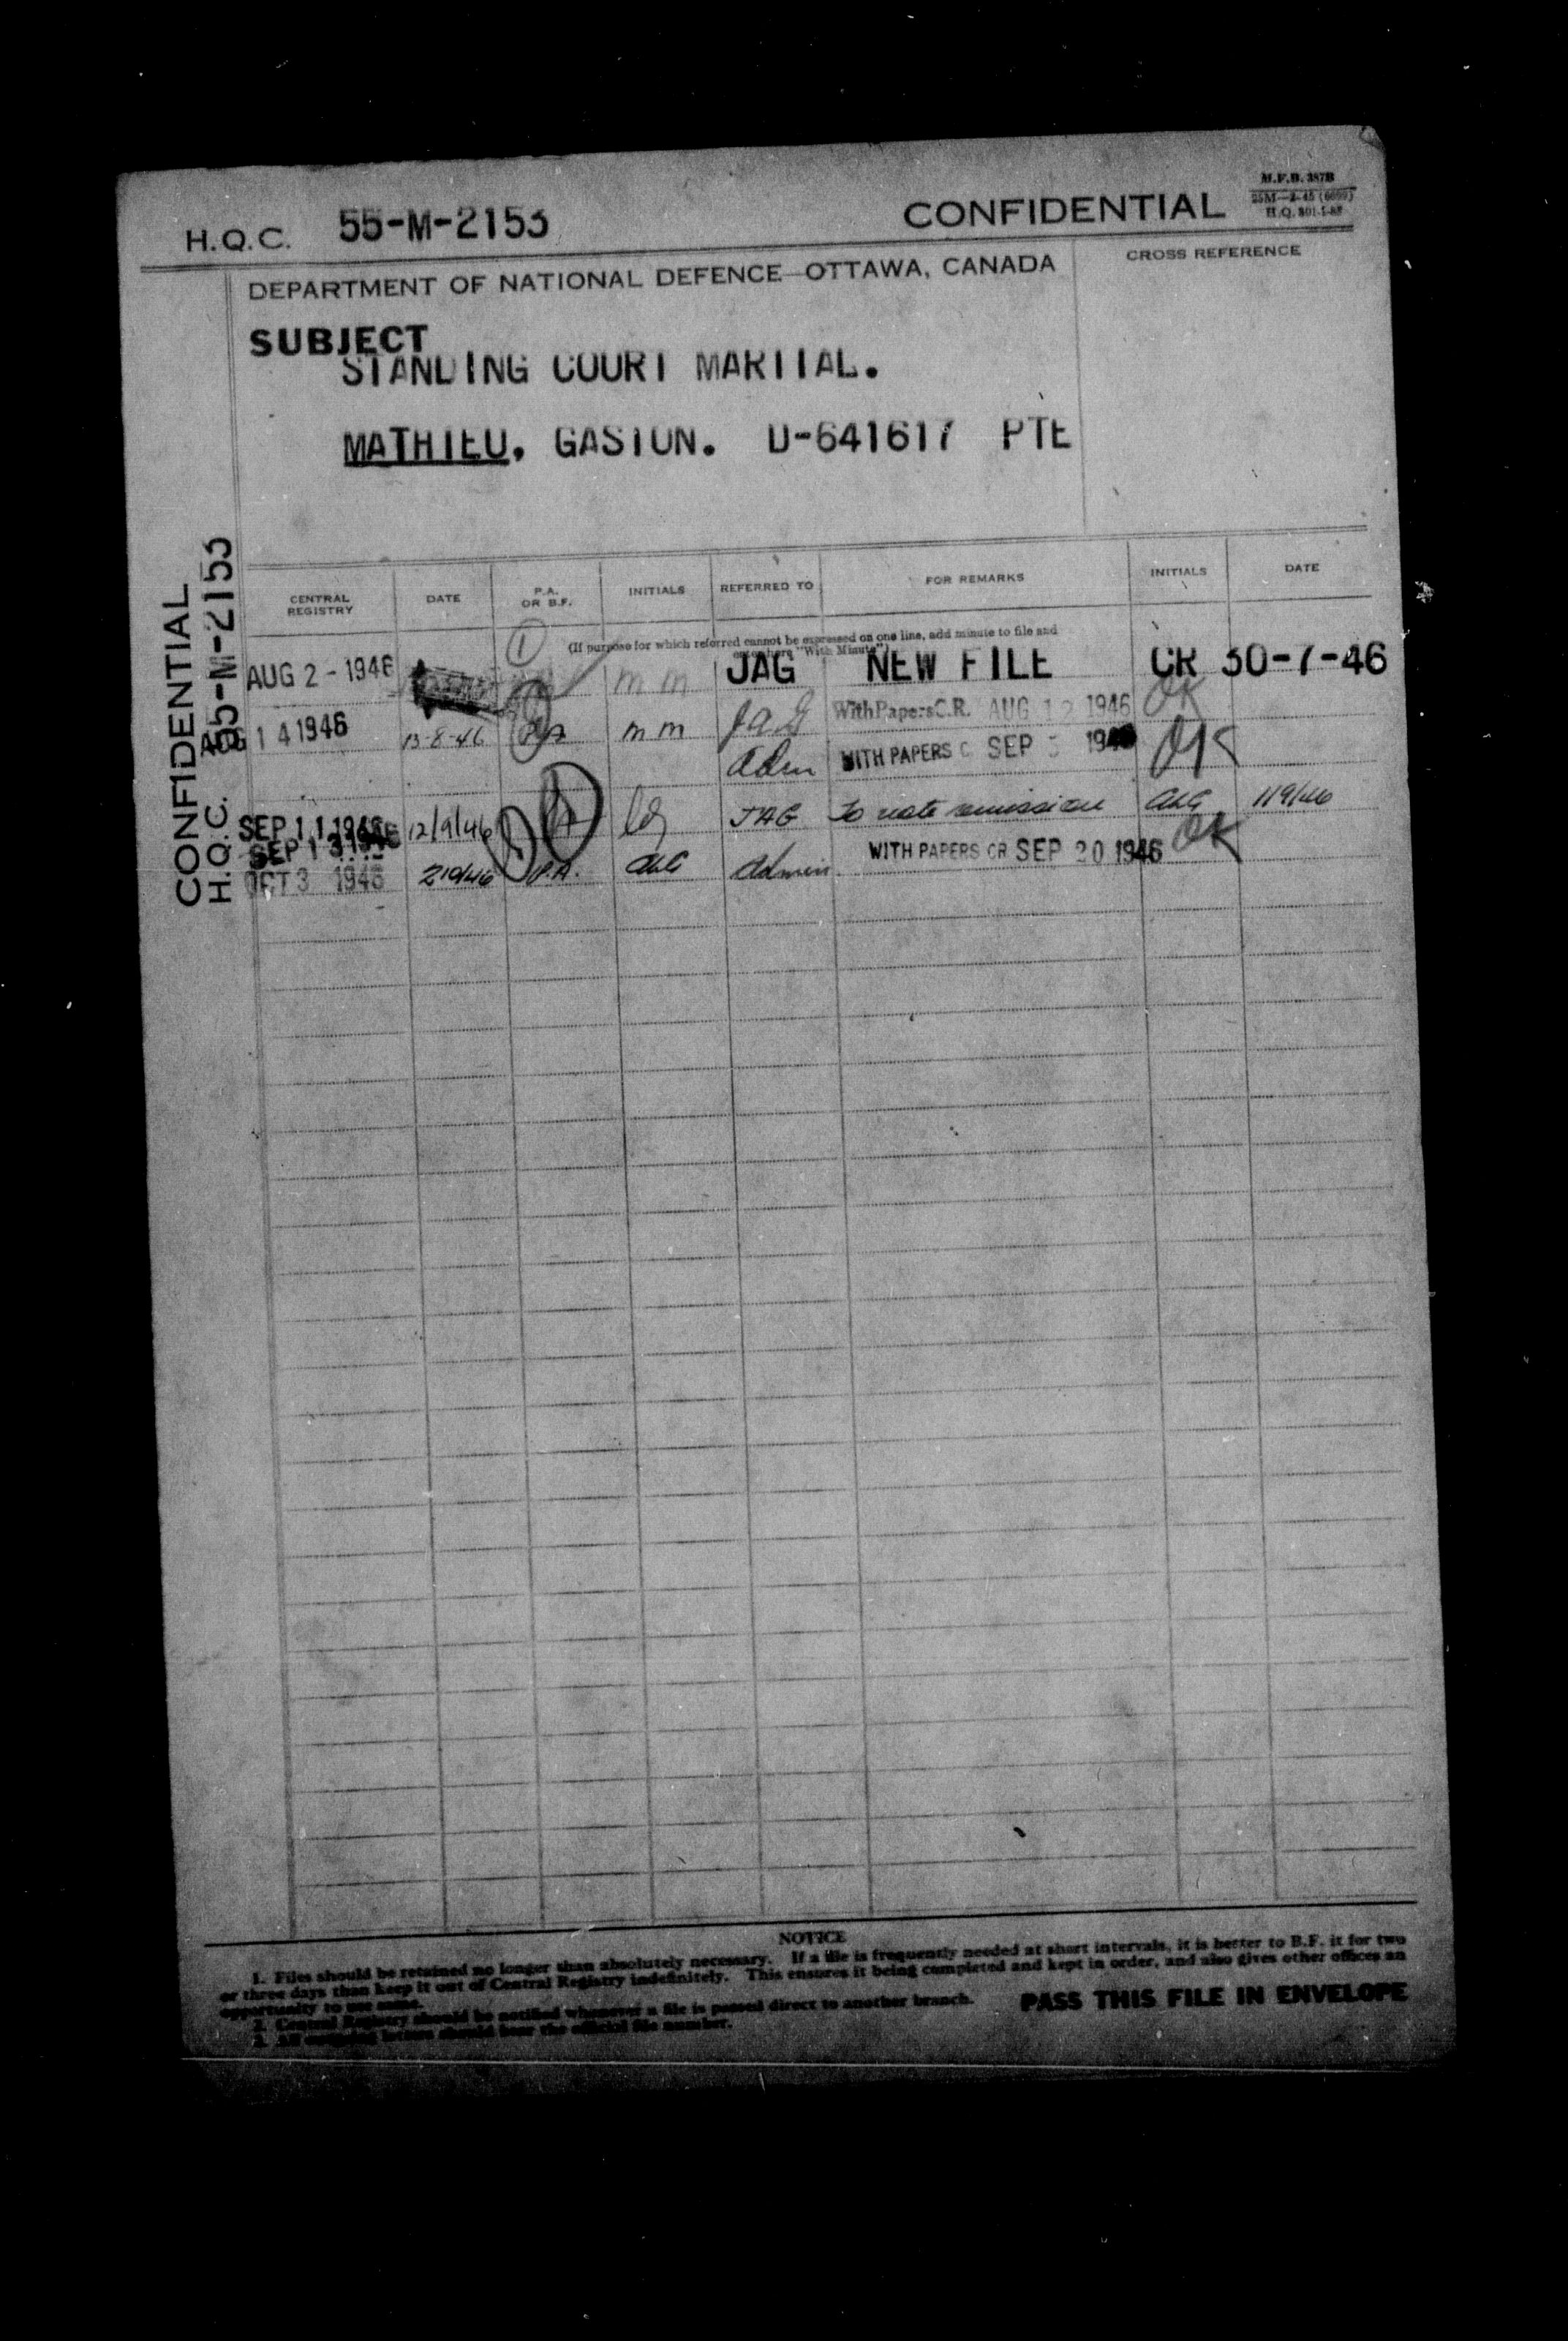 M.F.B. 387B
H.Q.C. 55-M-2153 CONFIDENTIAL
DEPARTMENT OF NATIONAL DEFENCE—OTTAWA, CANADA
CROSS REFERENCE
SUBJECT
STANDING COURT MARTIAL.
MATHIEU, GASTON. D-641617 PTE
CONFIDENTIAL
H.Q.C. 55-M-2153
CENTRAL REGISTRY DATE P.A. OR B.F. INITIALS REFERRED TO FOR REMARKS INITIALS DATE
(If purpose for which referred cannot be expressed on one line, add minute to file and
enter here "With Minute")
AUG 2 - 1946 m m JAG NEW FILE CR 30-7-46
AUG 14 1946 13-8-46 m m JAG With Papers C.R. AUG 12 1946 OK
Adm WITH PAPERS SEP 1946 OK
SEP 11 1946 12/9/46 JAG To note remission 11/9/46
SEP 13 1946
OCT 3 1946 2/10/46 P.A. Admin. WITH PAPERS CR SEP 20 1946 OK
NOTICE
1. Files should be retained no longer than absolutely necessary. If a file is frequently needed at short intervals, it is better to B.F. it for two
or three days than keep it out of Central Registry indefinitely. This ensures it being completed and kept in order, and also gives other offices an
opportunity to use same.
2. Central Registry should be notified whenever a file is passed direct to another branch.
3. All outgoing letters should bear the official file number.
PASS THIS FILE IN ENVELOPE